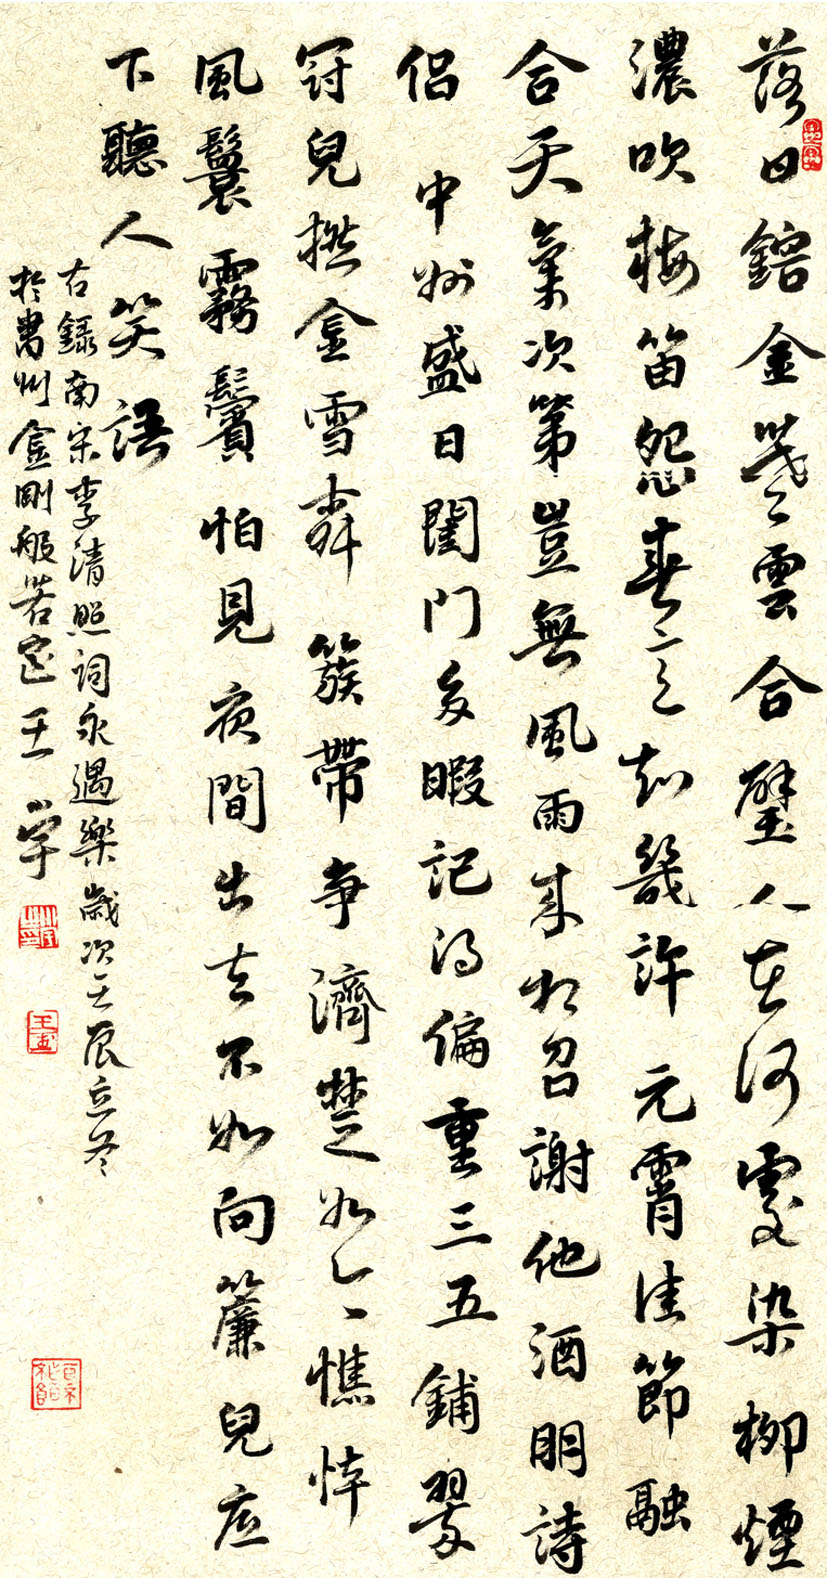 落日鎔金暮雲合璧人在何處染柳煙
濃吹梅笛怨春意知幾許 元宵佳節融
合天氣次第豈無風雨來相召謝他酒朋詩
侶 中州盛日閨門多暇記得偏重三五鋪翠
冠兒撚金雪柳 簇帶争濟楚如今憔悴
風鬟霧鬢怕見夜間出去不如向簾兒底
下聽人笑語
右録南宋李清照詞永遇樂歲次壬辰立冬
於州金剛般若室王宇